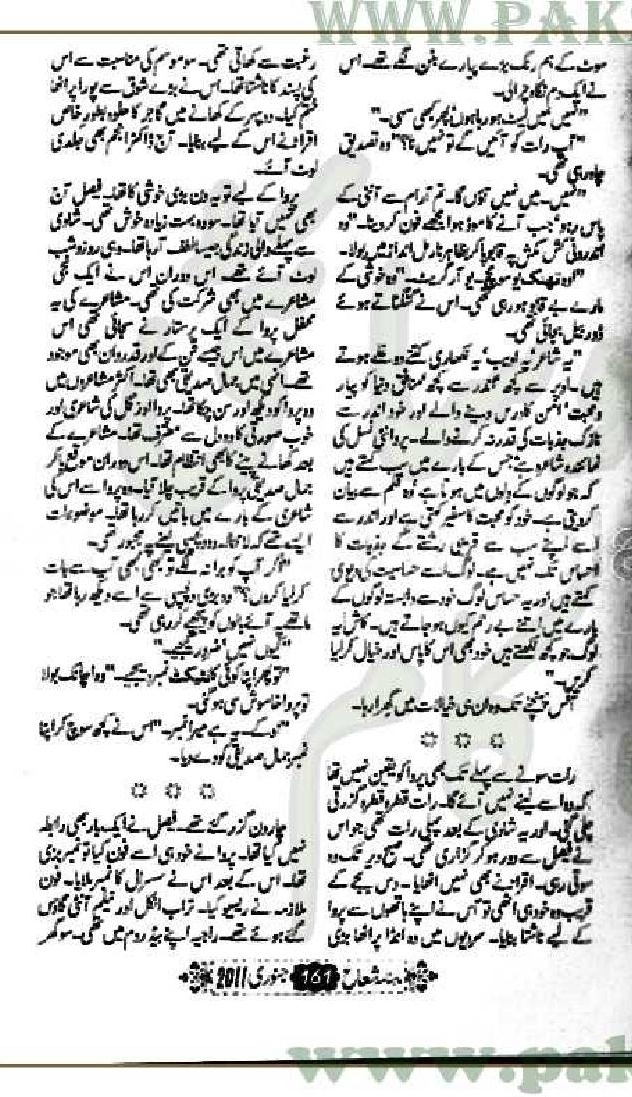 WWW.PAKS
سوٹ کے ہم رنگ بڑے پیارے بٹن لگے تھے۔ اس
نے ایک دم نگاہ چرالی۔
"نہیں میں لیٹ ہو رہا ہوں، پھر کبھی سہی۔"
"آپ رات کو آئیں گے تو نہیں نا؟" وہ تصدیق
چاہ رہی تھی۔
"نہیں۔ میں نہیں آؤں گا۔ تم آرام سے آنٹی کے
پاس رہو، جب آنے کا موڈ ہو مجھے فون کر دینا۔" وہ
اندرونی کش مکش پہ قابو پا کر بظاہر نارمل انداز میں بولا۔
"اوہ تھینک یو سو مچ۔ یو آر گریٹ۔" وہ خوشی کے
مارے بے قابو ہو رہی تھی۔ اس نے گنگناتے ہوئے
ڈور بیل بجائی تھی۔
"یہ شاعر یہ ادیب، یہ لکھاری کتنے دوغلے ہوتے
ہیں۔ اوپر سے کچھ اندر سے کچھ دنیا کو پیار
و محبت، امن کا درس دینے والے اور خود اندر سے
نازک جذبات کی قدر نہ کرنے والے۔ پروا نئی نسل کی
نمائندہ شاعرہ ہے جس کے بارے میں سب کہتے ہیں
کہ جو لوگوں کے دلوں میں ہوتا ہے وہ قلم سے بیان
کر دیتی ہے۔ خود کو محبت کا سفیر کہتی ہے اور اندر سے
اسے اپنے سب سے قریبی رشتے کے جذبات کا
احساس تک نہیں ہے۔ لوگ اسے حساسیت کی دیوی
کہتے ہیں اور یہ حساس لوگ خود سے وابستہ لوگوں کے
بارے میں اتنے بے رحم کیوں ہو جاتے ہیں۔ کاش یہ
لوگ جو کچھ لکھتے ہیں خود بھی اس کا پاس اور خیال کر لیا
کریں۔"
آفس پہنچنے تک وہ ان ہی خیالات میں گھرا رہا۔
رات سونے سے پہلے تک بھی پروا کو یقین نہیں تھا
کہ وہ اسے لینے نہیں آئے گا۔ رات قطرہ قطرہ گزرتی
چلی گئی۔ اور یہ شادی کے بعد پہلی رات تھی جو اس
نے فیصل سے دور ہو کر گزاری تھی۔ صبح دیر تک وہ
سوتی رہی۔ اقرا نے بھی نہیں اٹھایا۔ دس بجے کے
قریب وہ خود ہی اٹھی تو اس نے اپنے ہاتھوں سے پروا
کے لیے ناشتا بنایا۔ سردیوں میں وہ انڈا پراٹھا بڑی
رغبت سے کھاتی تھی۔ سو موسم کی مناسبت سے اس
کی پسند کا ناشتا تھا۔ اس نے بڑے شوق سے پورا پراٹھا
ختم کیا۔ دوپہر کے کھانے میں گاجر کا حلوہ بطور خاص
اقرا نے اس کے لیے بنایا۔ آج ڈاکٹر انجم بھی جلدی
لوٹ آئے۔
پروا کے لیے تو یہ دن بڑی خوشی کا تھا۔ فیصل آج
بھی نہیں آیا تھا۔ سو وہ بہت زیادہ خوش تھی۔ شادی
سے پہلے والی زندگی جیسا لطف آرہا تھا۔ وہی روز و شب
لوٹ آئے تھے۔ اس دوران اس نے ایک نجی
مشاعرے میں بھی شرکت کی تھی۔ مشاعرے کی یہ
محفل پروا کے ایک پرستار نے سجائی تھی اس
مشاعرے میں اس جیسے فن کے اور قدردان بھی موجود
تھے۔ انہی میں جمال صدیقی بھی تھا۔ اکثر مشاعروں میں
وہ پروا کو دیکھ اور سن چکا تھا۔ پروا اور گل کی شاعری اور
خوب صورتی کا وہ دل سے معترف تھا۔ مشاعرے کے
بعد کھانے پینے کا بھی انتظام تھا۔ اس دوران موقع پا کر
جمال صدیقی پروا کے قریب چلا آیا۔ وہ پروا سے اس کی
شاعری کے بارے میں باتیں کر رہا تھا۔ موضوعات
ایسے تھے کہ وہ دلچسپی لینے پہ مجبور تھی۔
"اگر آپ کو برا نہ لگے تو کبھی کبھی آپ سے بات
کر لیا کروں؟" وہ بڑی دلچسپی سے اسے دیکھ رہا تھا جو
ماتھے پہ آئے بالوں کو پیچھے کر رہی تھی۔
"کیوں نہیں ضرور کیجیے۔"
"تو پھر اپنا کوئی کانٹیکٹ نمبر دیجیے۔" وہ اچانک بولا
تو پروا خاموش سی ہو گئی۔
"اوکے۔ یہ ہے میرا نمبر۔" اس نے کچھ سوچ کر اپنا
نمبر جمال صدیقی کو دے دیا۔
چار دن گزر گئے تھے۔ فیصل نے ایک بار بھی رابطہ
نہیں کیا تھا۔ پروا نے خود ہی اسے فون کیا تو نمبر بزی
تھا۔ اس کے بعد اس نے سسرال کا نمبر ملایا۔ فون
ملازمہ نے ریسیو کیا۔ تراب انکل اور نیلم آنٹی گاؤں
گئے ہوئے تھے۔ راجیہ اپنے بیڈ روم میں تھی۔ سو گھر
ماہنامہ شعاع 161 جنوری 2011
www.pak